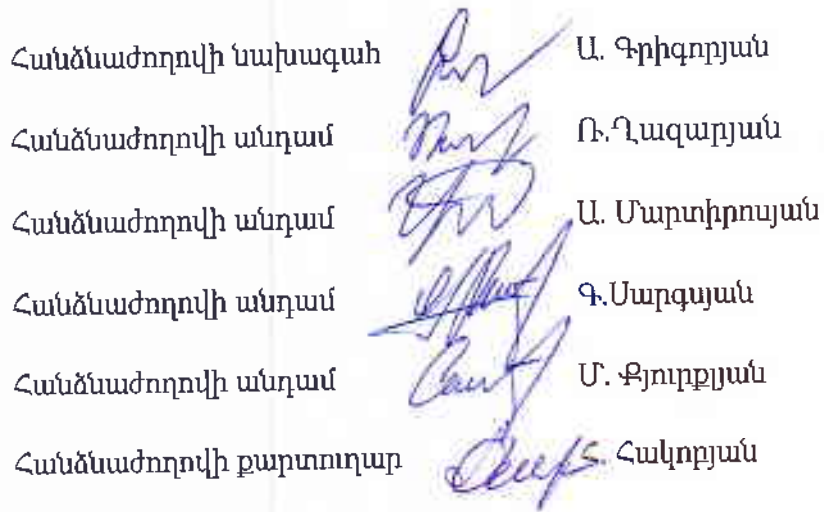 Հանձնաժողովի նախագահ Ա. Գրիգորյան
Հանձնաժողովի անդամ Ռ.Ղազարյան
Հանձնաժողովի անդամ Ա. Մարտիրոսյան
Հանձնաժողովի անդամ Գ.Սարգսյան
Հանձնաժողովի անդամ Մ. Քյուրքլյան
Հանձնաժողովի քարտուղար Տ. Հակոբյան